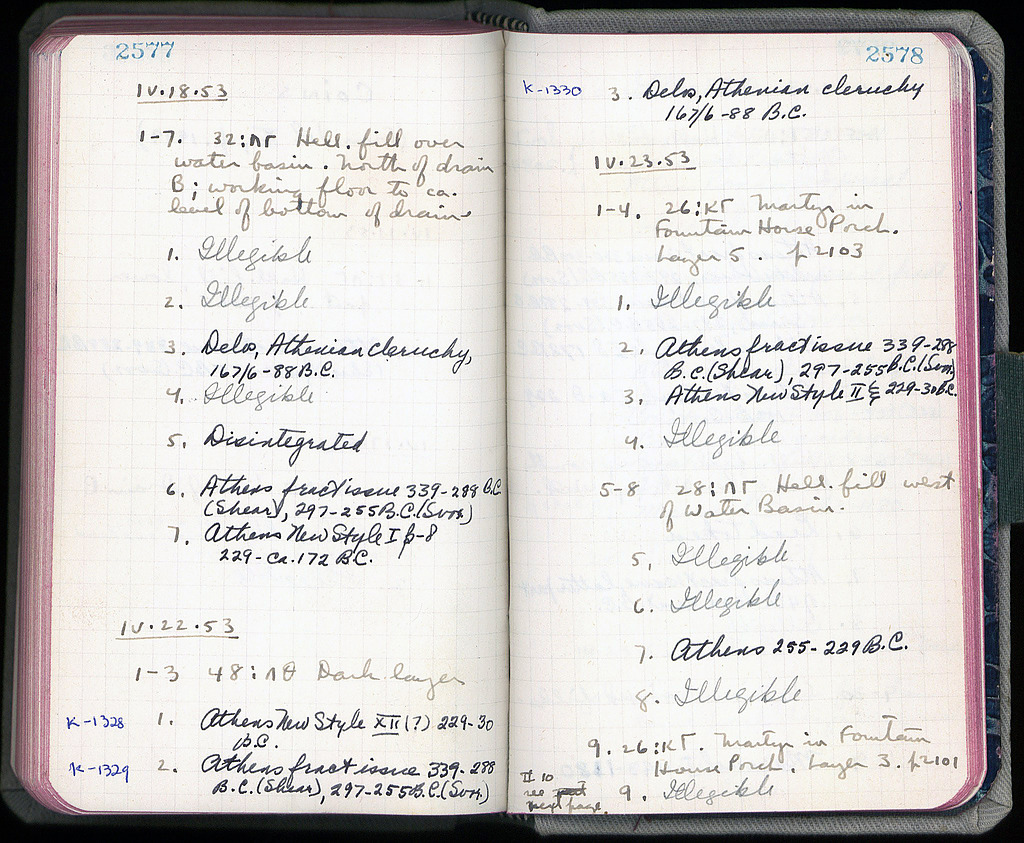 2577
IV.18.53
1-7. 32:ΛΓ Hell. fill over
water basin. North of drain
B; working floor to ca.
level of bottom of drain
1. Illegible
2. Illegible
3. Delos, Athenian cleruchy,
167/6-88 B.C.
4. Illegible
5. Disintegrated
6. Athens fract issue 339-288 B.C.
(Shear), 297-255 B.C. (Svor.)
7. Athens New Style I β-8
229-ca.172 B.C.
IV.22.53
1-3 48:ΛΘ Dark layer
K-1328 1. Athens New Style XII (?) 229-30
B.C.
K-1329 2. Athens fract issue 339-288
B.C. (Shear), 297-255 B.C. (Svor.)
2578
K-1330 3. Delos, Athenian cleruchy
167/6-88 B.C.
IV.23.53
1-4. 26:ΚΓ Martyr in
Fountain House Porch.
Layer 5 p 2103
1. Illegible
2. Athens fract issue 339-288
B.C. (Shear), 297-255 B.C. (Svor.)
3. Athens New Style II 229-30 B.C.
4. Illegible
5-8 28:ΛΓ Hell. fill west
of Water Basin.
5. Illegible
6. Illegible
7. Athens 255-229 B.C.
8. Illegible
9. 26:ΚΓ. Martyr in Fountain
House Porch. Layer 3. p 2101
9. Illegible
10
see
next page.